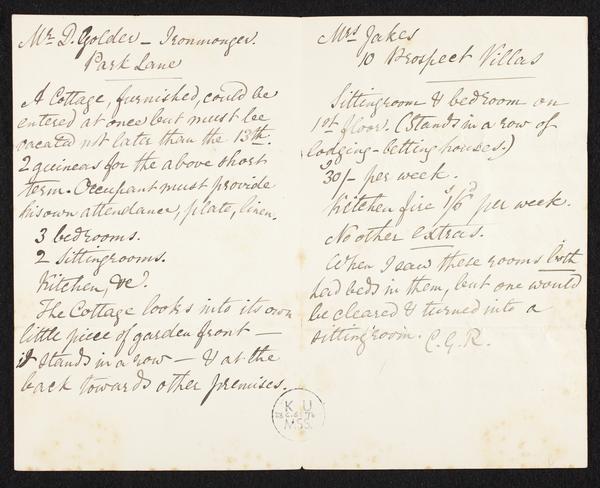 Mr. D. Golder — Ironmonger.
Park Lane
A Cottage, furnished, could be
entered at once but must be
vacated not later than the 13th.
2 guineas for the above short
term. Occupant must provide
his own attendance, plate, linen.
3 bedrooms.
2 Sittingrooms.
Kitchen, &c.
The Cottage looks into its own
little piece of garden front —
it stands in a row — & at the
back towards other premises.
Mrs Jakes
10 Prospect Villas
Sittingroom & bedroom on
1st floor. (Stands in a row of
lodging-letting houses.)
30/- per week.
Kitchen fire 1s/6d per week.
No other extras.
When I saw these rooms both
had beds in them, but one would
be cleared & turned into a
sittingroom. C.G.R.
K U
MSS.